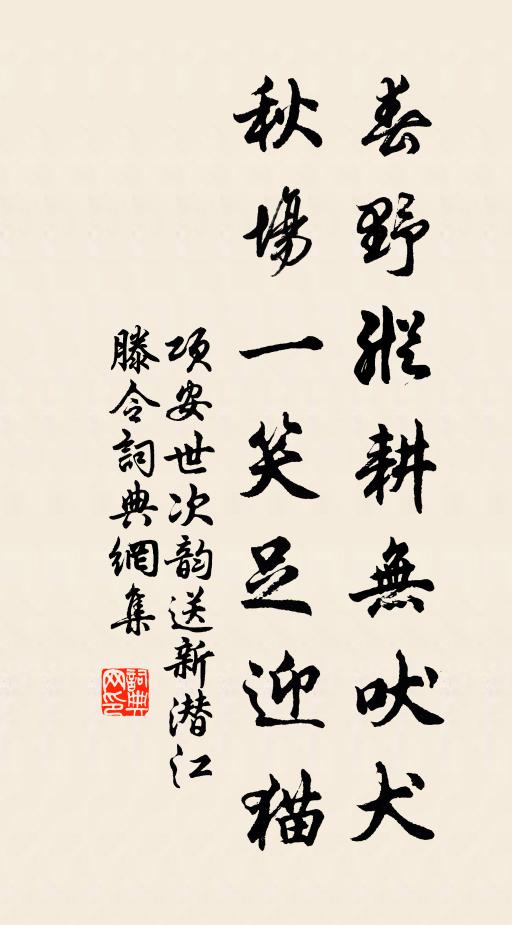 春野縱耕無吠犬
秋場一笑足迎猫
项安世次韵送新潜江
滕令詞典網集
詞典网印